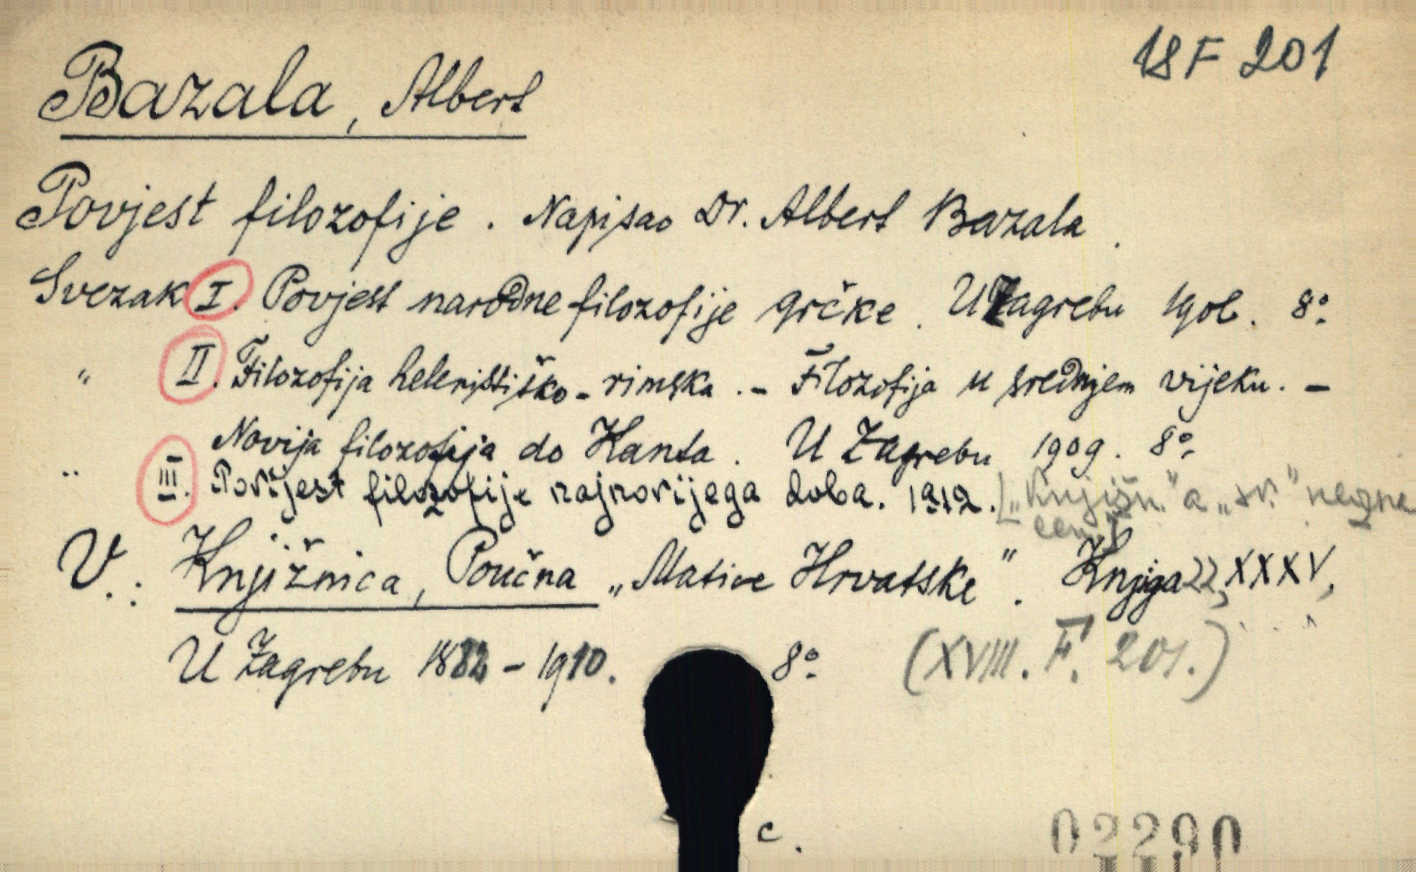 18 F 201
Bazala, Albert
Povjest filozofije. Napisao Dr. Albert Bazala.
Svezak I. Povjest narodne filozofije grčke. U Zagrebu 1906. 8°
" II. Filozofija helenistiško-rimska. – Filozofija u srednjem vijeku. –
Novija filozofija do Kanta. U Zagrebu 1909. 8°
" III. Povijest filozofije najnovijega doba. 1912. ["Knjižn." a "sv."
V.: Knjižnica, Poučna „Matice Hrvatske". Knjiga 22, XXXV,
U Zagrebu 1882 – 1910. 8° (XVIII. F. 201.)
c.
02290